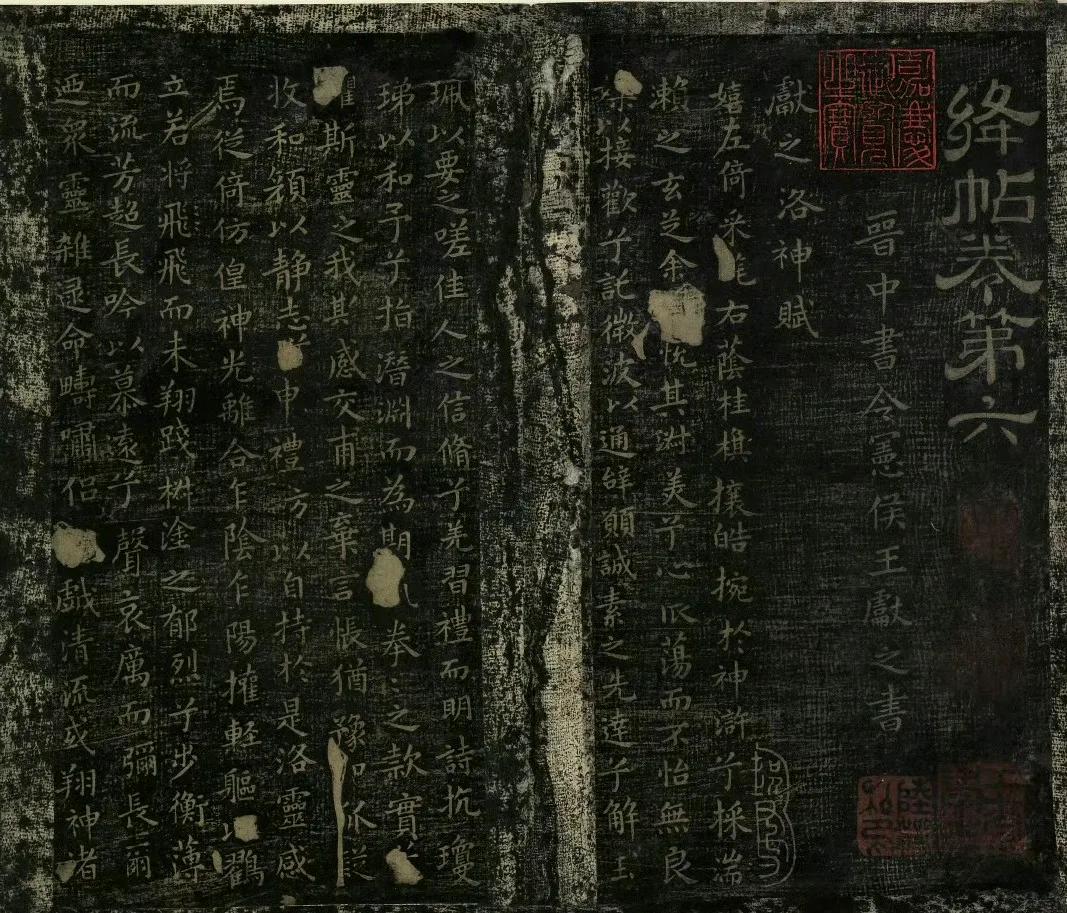 絳帖卷第六
嘉慶御覽之寶
晉中書令憲侯王獻之書
獻之洛神賦
嬉左倚采旄右蔭桂旗攘皓捥於神滸兮採湍
瀨之玄芝余悅其淑美兮心振蕩而不怡無良
以接歡兮託微波以通辭願誠素之先達兮解玉
珮以要之嗟佳人之信脩兮羌習禮而明詩抗瓊
珶以和予兮指潛淵而為期拳〻之款實
懼斯靈之我其感交甫之棄言悵猶豫狐疑
收和顏以靜志兮申禮方以自持於是洛靈感
焉徙倚仿偟神光離合乍陰乍陽擢輕軀以鸖
立若將飛飛而未翔踐椒塗之郁烈兮步衡薄
而流芳超長吟以慕遠兮聲哀厲而彌長爾
迺衆靈雜遝命疇嘯侣戲清流或翔神渚